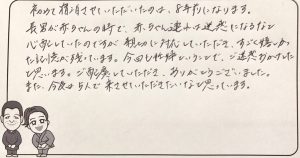 初めて宿泊させていただいたのは、8年前になります。
長男が赤ちゃんの時で、赤ちゃん連れは迷惑になるなと
心配していたのですが親切に対応していただき、すごく嬉しかっ
た記憶が残っています。今回も妊婦ということで、ご迷惑おかけした
と思います。ご配慮していただき、ありがとうございました。
また、今度は5人で来させていただきたいなと思っています。